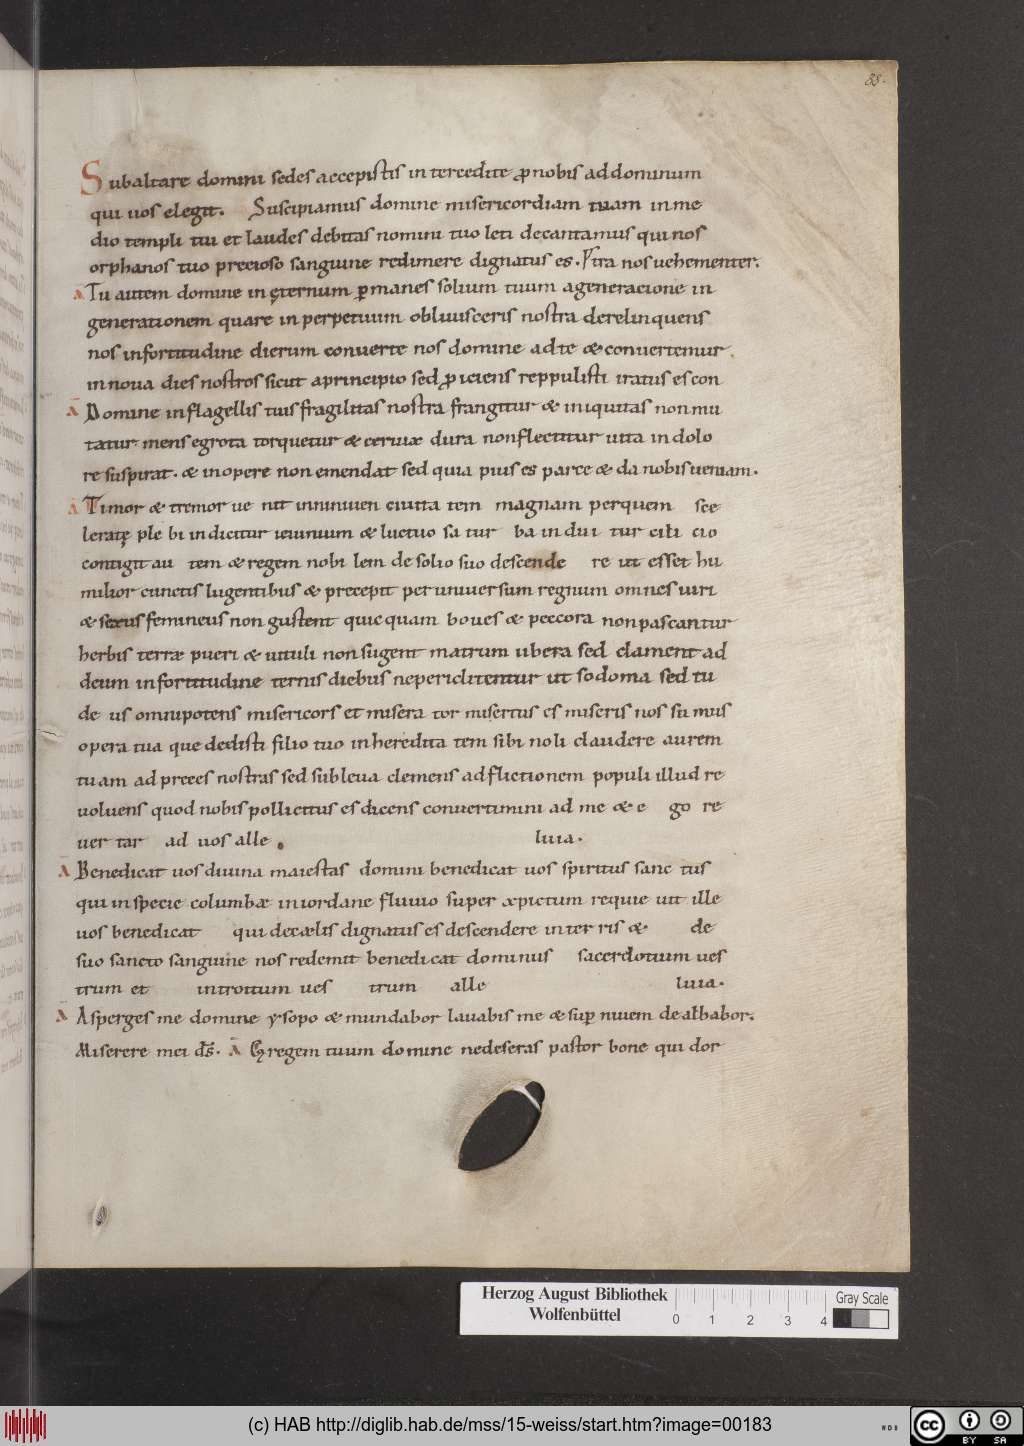 88.
Sub altare domini sedes accepistis intercedite ꝓ nobis ad dominum
qui uos elegit. Suscipiamus domine misericordiam tuam in me
dio templi tui et laudes debitas nomini tuo leti decantamus qui nos
orphanos tuo precioso sanguine redimere dignatus es. tra nos uehementer.
A Tu autem domine in ęternum ꝑmanes solium tuum a generacione in
generationem quare in perpetuum obliuisceris nostra derelinquens
nos in fortitudine dierum conuerte nos domine ad te & conuertemur
in noua dies nostros sicut a principio sed ꝓiciens reppulisti iratus es con
A Domine in flagellis tuis fragilitas nostra frangitur & iniquitas non mu
tatur mens egrota torquetur & ceruix dura non flectitur uita in dolo
re suspirat. & in opere non emendat sed quia pius es parce & da nobis ueniam.
A Timor & tremor ue nit in niniuen ciuita tem magnam per quem sce
leratę ple bi indicitur ieiunium & luctuo sa tur ba indui tur cili cio
contigit au tem & regem nobi lem de solio suo descende re ut esset hu
milior cunctis lugentibus & precepit per uniuersum regnum omnes uiri
& sexus femineus non gustent quicquam boues & peccora non pascantur
herbis terræ pueri & uituli non sugent matrum ubera sed clament ad
deum in fortitudine ternis diebus ne periclitentur ut sodoma sed tu
de us omnipotens misericors et misera tor misertus es miseris nos su mus
opera tua que dedisti filio tuo in heredita tem sibi noli claudere aurem
tuam ad preces nostras sed subleua clemens adflictionem populi illud re
uoluens quod nobis pollicitus es dicens conuertimini ad me & e go re
uer tar ad uos alle luia.
A Benedicat uos diuina maiestas domini benedicat uos spiritus sanc tus
qui in specie columbæ in iordane fluuio super xpictum requie uit ille
uos benedicat qui de cælis dignatus es descendere in ter ris & de
suo sancto sanguine nos redemit benedicat dominus sacerdotium ues
trum et introitum ues trum alle luia.
A Asperges me domine ysopo & mundabor lauabis me & suꝑ niuem dealbabor.
Miserere mei ds̄. A Gregem tuum domine ne deseras pastor bone qui dor
Herzog August Bibliothek
Wolfenbüttel
0 1 2 3 4
Gray Scale
(c) HAB http://diglib.hab.de/mss/15-weiss/start.htm?image=00183
cc BY SA